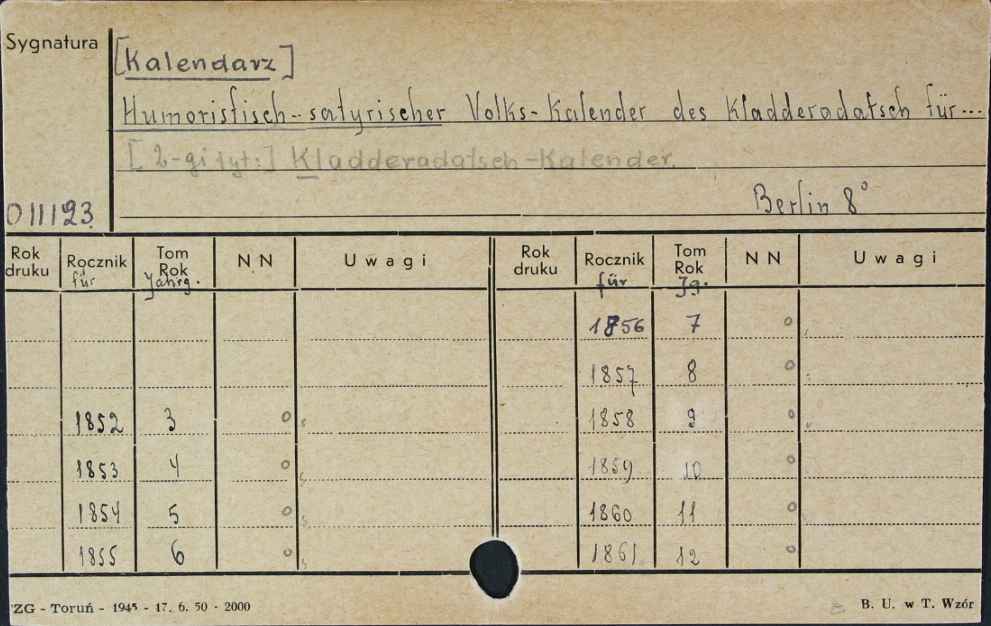 Sygnatura
[Kalendarz]
Humoristisch-satyrischer Volks-Kalender des Kladderadatsch für...
[2-gi tyt:] Kladderadatsch-Kalender.
Berlin 8°
011123
Rok druku Rocznik für Tom Rok Jahrg. NN Uwagi Rok druku Rocznik für Tom Rok Jg. NN Uwagi
1856 7 o
1857 8 o
1852 3 o 1858 9 o
1853 4 o 1859 10 o
1854 5 o 1860 11 o
1855 6 o 1861 12 o
ZG - Toruń - 1945 - 17. 6. 50 - 2000 B. U. w T. Wzór